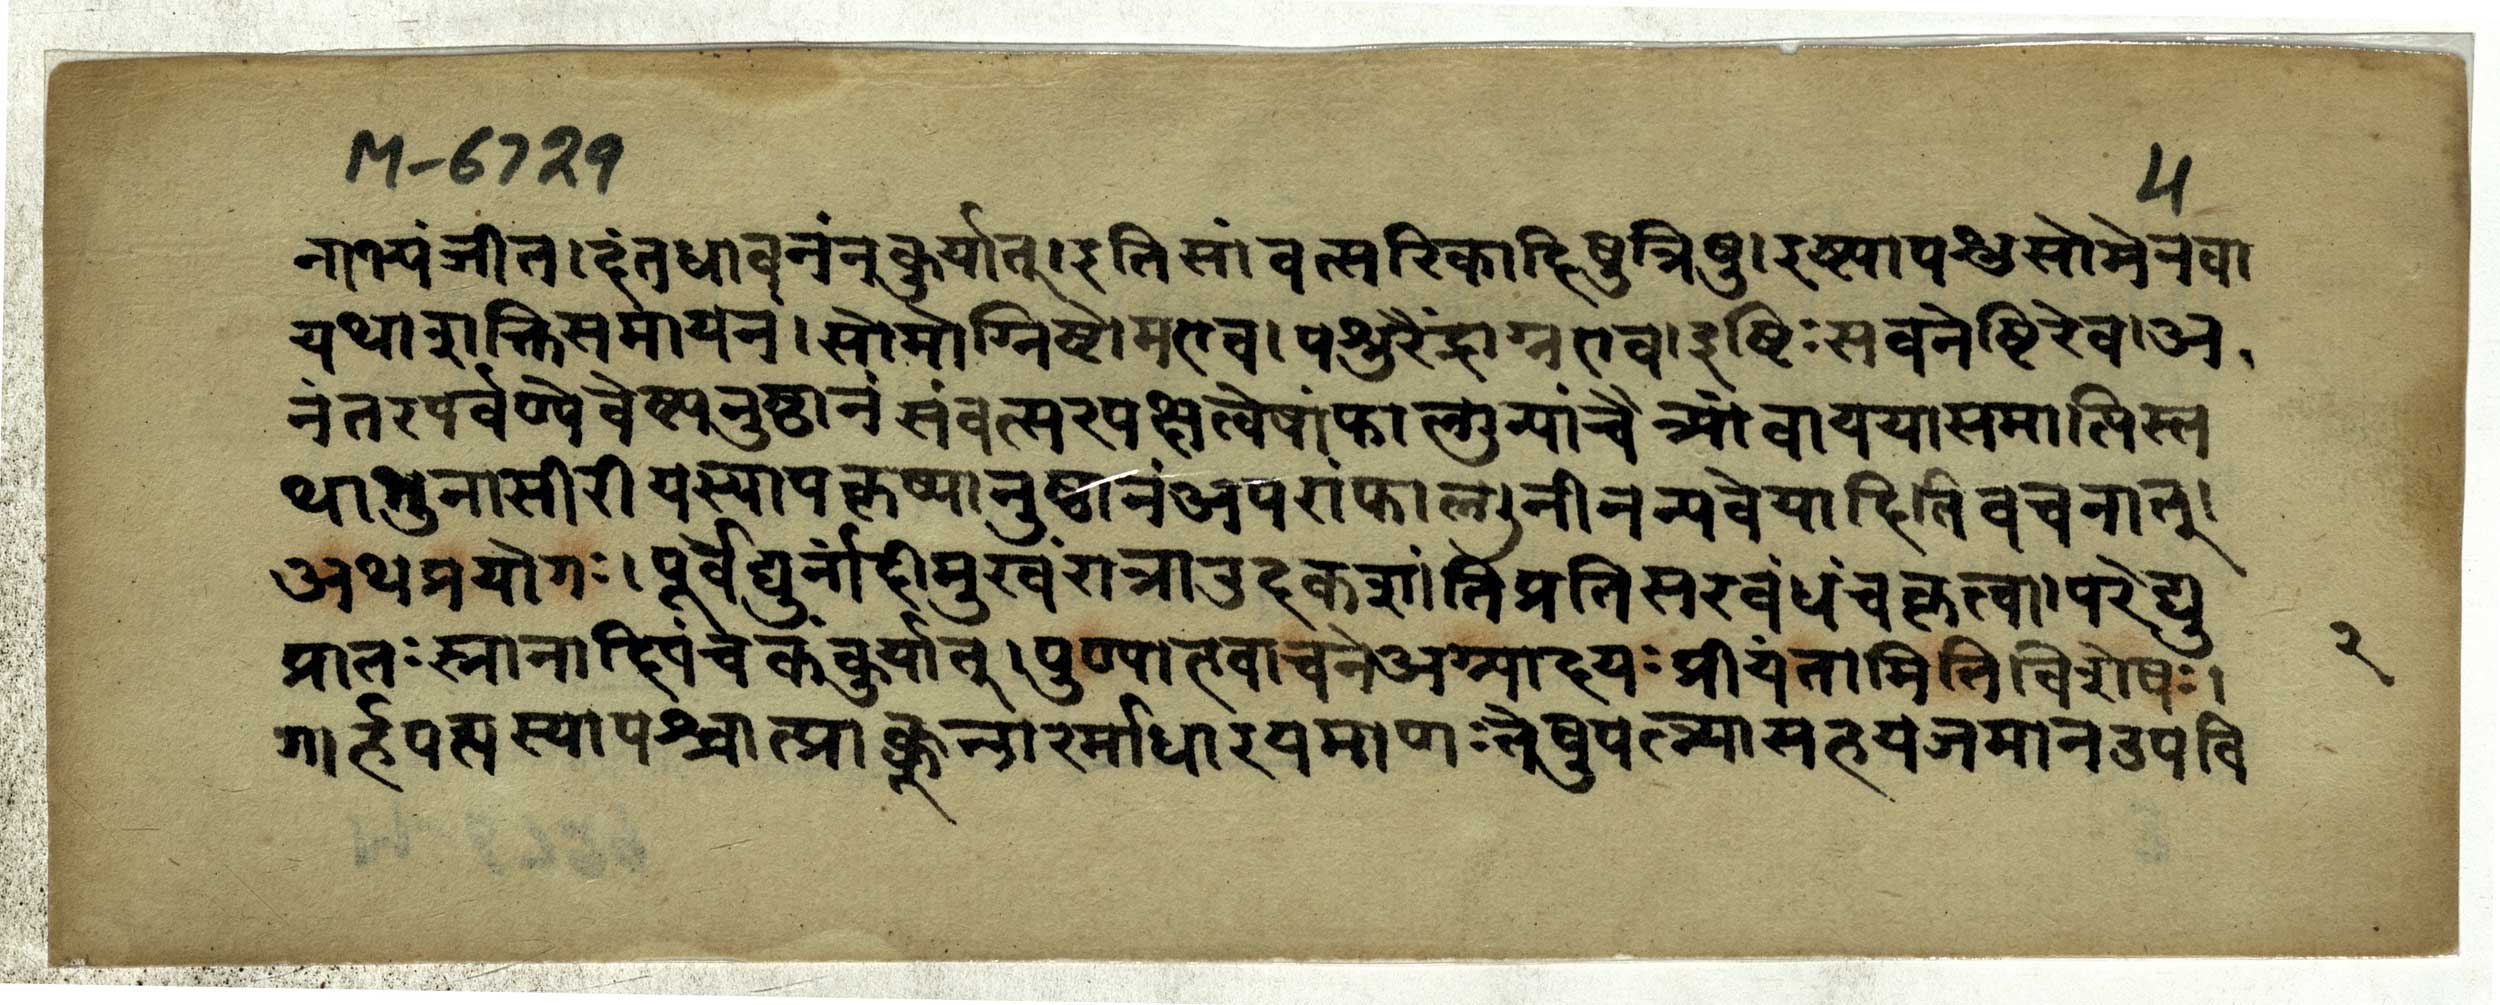 M-6729
4
नाभ्यंजीत।दंतधावनंनकुर्यात्।इतिसांवत्सरिकादिषुत्रिषु।इष्ट्यापशुसोमेनवा
यथाशक्तिसमापनं।सोमोग्निष्टोमएव।पशुरैंद्राग्नएव।इष्टिःसवनेष्टिरेव।अ
नंतरपर्वण्येवेष्ट्यनुष्ठानंसंवत्सरपक्षत्वेषांफाल्गुन्यांचैत्र्यांवायथासमाप्तिस्त
थाशुनासीरीयस्यापकृष्यानुष्ठानंअपरांफाल्गुनीनन्यवेयादितिवचनात्।
अथप्रयोगः।पूर्वेद्युर्नांदीमुखंरात्राउदकशांतिप्रतिसरबंधंचकृत्वा।परेद्यु
प्रातःस्नानादिपंचकंकुर्यात्।पुण्याहवाचनेअग्न्यादयःप्रीयंतामितिविशेषः।
२
गार्हपत्यस्यापश्चात्प्राक्कूलान्दर्भाधारयमाणःतेषुपत्न्यासहयजमानउपवि